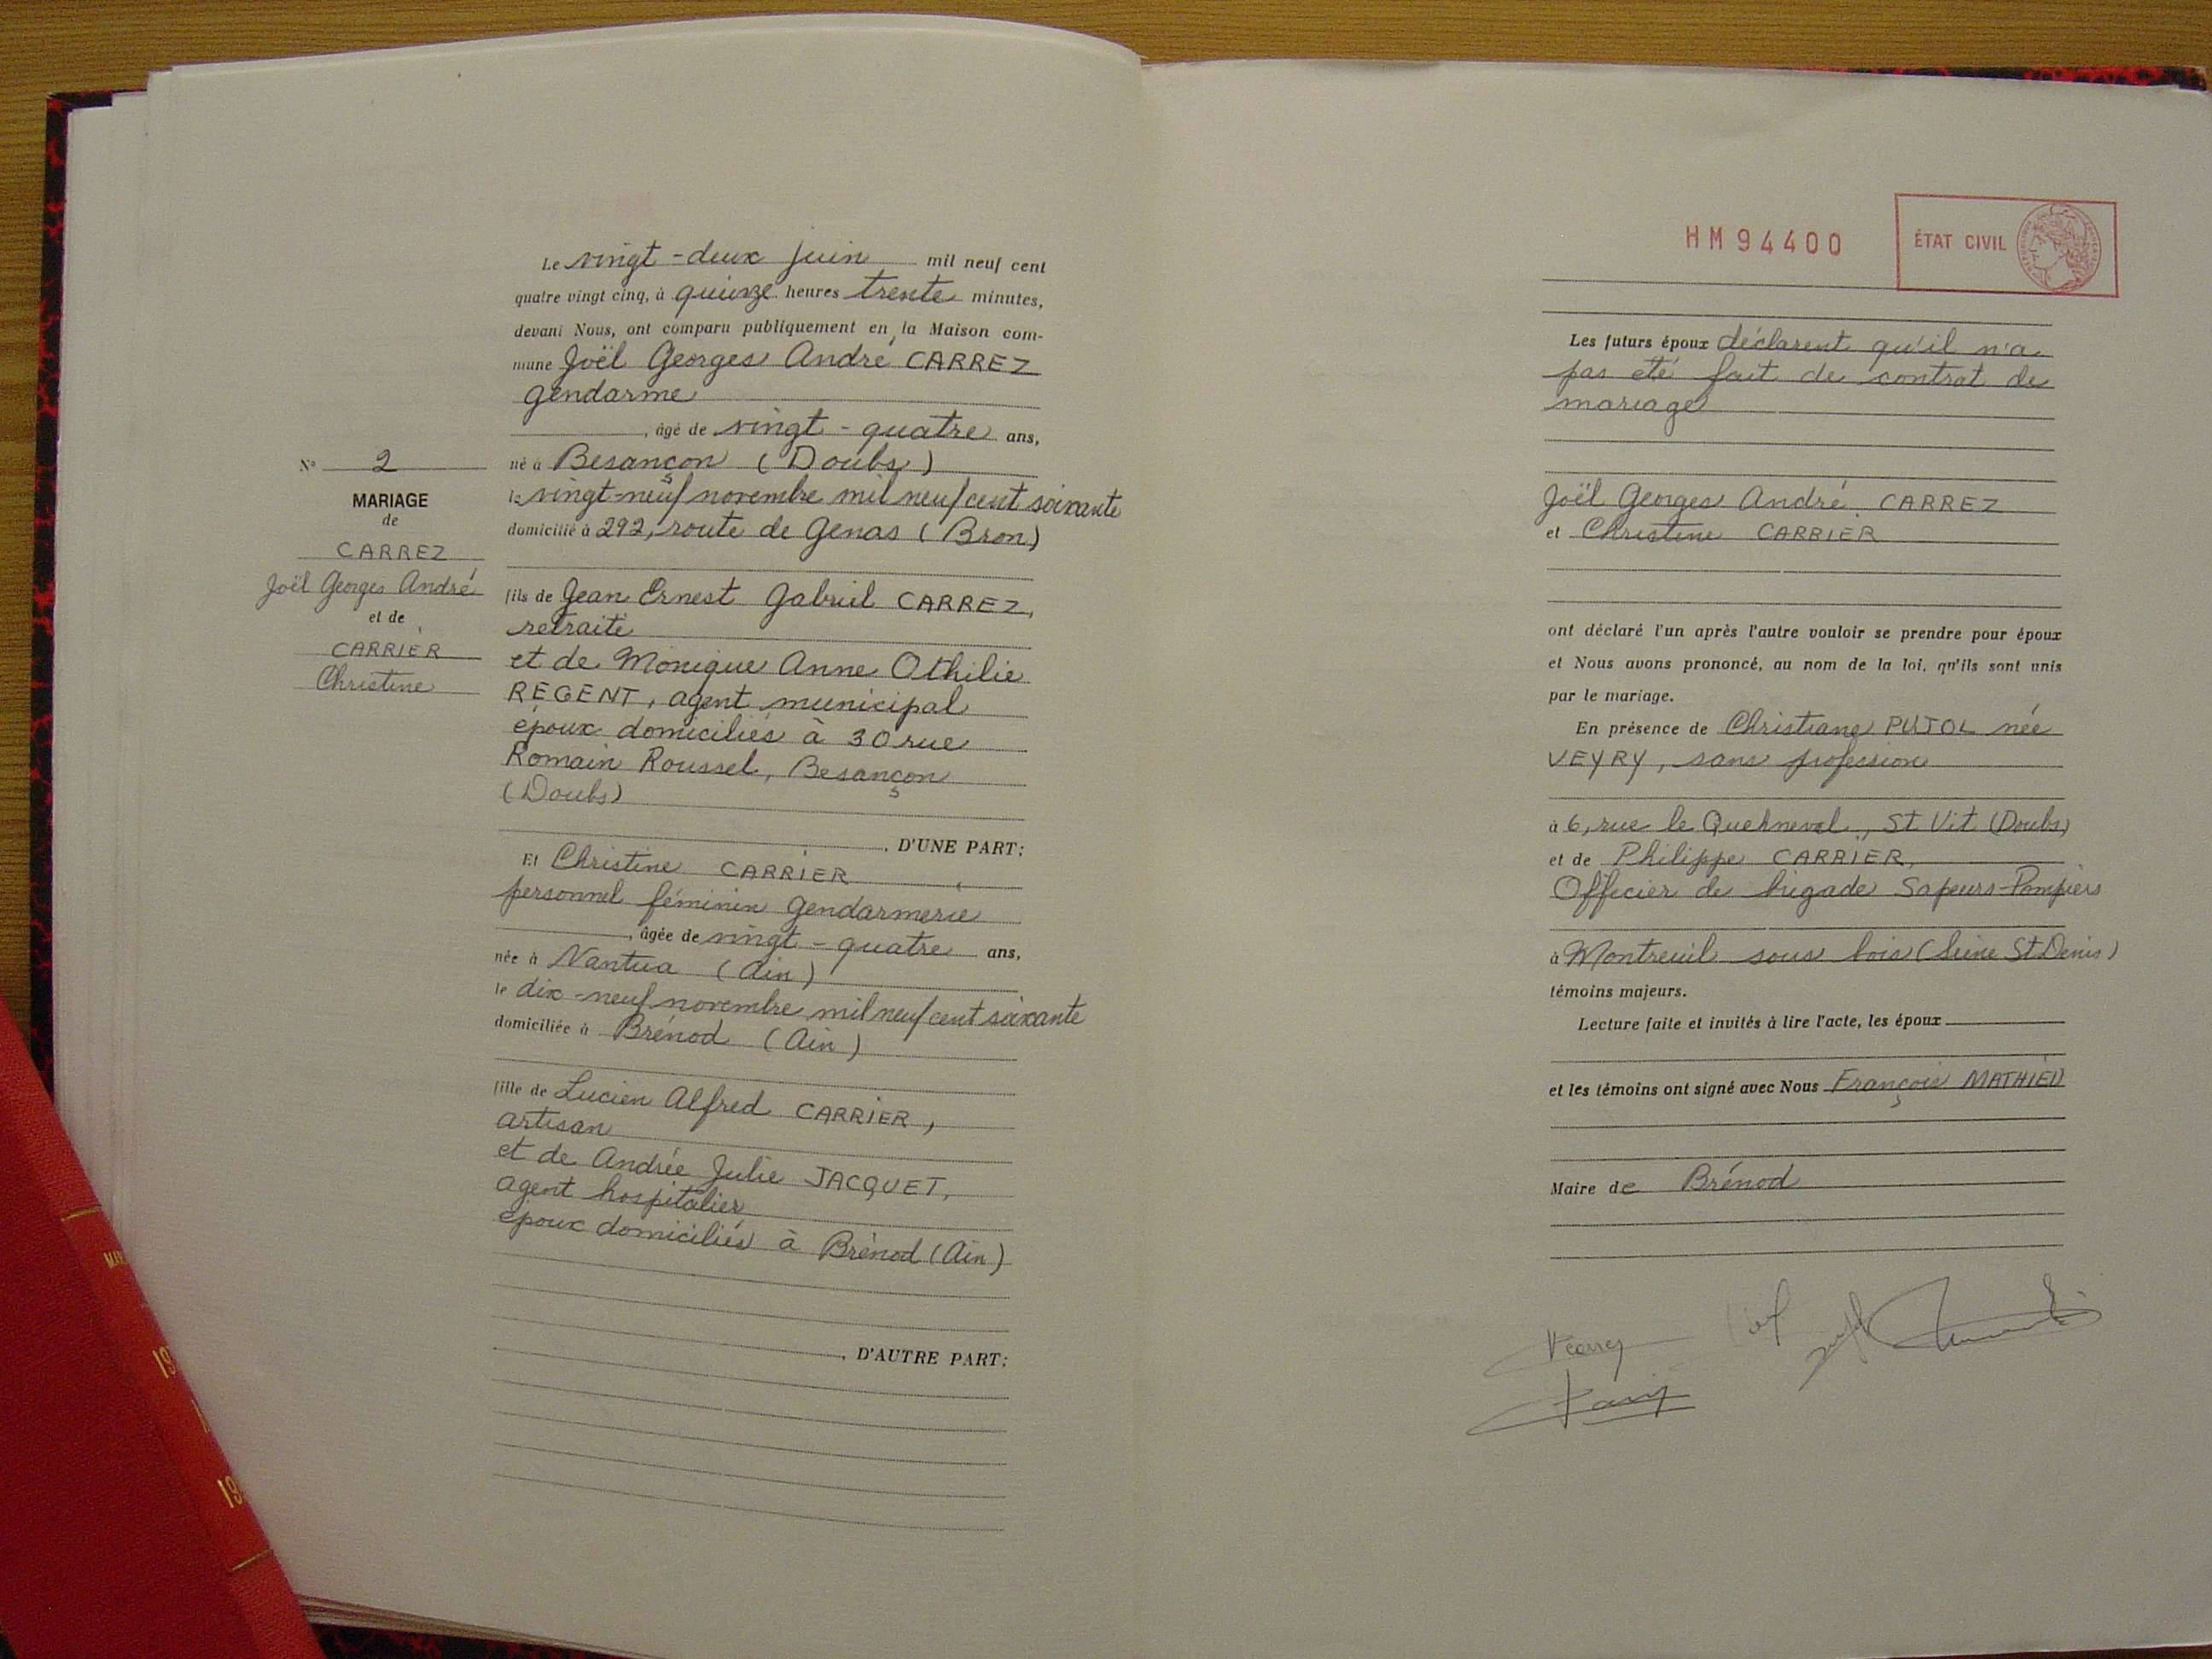 Le vingt-deux juin mil neuf cent
quatre vingt cinq, à quinze heures trente minutes,
devant Nous, ont comparu publiquement en la Maison com-
mune Joël Georges André CARREZ
gendarme
, âgé de vingt-quatre ans,
né à Besançon (Doubs)
le vingt-neuf novembre mil neuf cent soixante
domicilié à 292, route de Genas (Bron)
fils de Jean Ernest Gabriel CARREZ,
retraité
et de Monique Anne Othilie
REGENT, agent municipal
époux domiciliés à 30 rue
Romain Roussel, Besançon
(Doubs)
, D'UNE PART;
Et Christine CARRIER
personnel féminin gendarmerie
, âgée de vingt-quatre ans,
née à Nantua (Ain)
le dix-neuf novembre mil neuf cent soixante
domiciliée à Brénod (Ain)
fille de Lucien Alfred CARRIER,
artisan
et de Andrée Julie JACQUET,
agent hospitalier
époux domiciliés à Brénod (Ain)
, D'AUTRE PART;
N° 2
MARIAGE
de
CARREZ
Joël Georges André
et de
CARRIER
Christine
HM94400
ÉTAT CIVIL
Les futurs époux déclarent qu'il n'a
pas été fait de contrat de
mariage
Joël Georges André CARREZ
et Christine CARRIER
ont déclaré l'un après l'autre vouloir se prendre pour époux
et Nous avons prononcé, au nom de la loi, qu'ils sont unis
par le mariage.
En présence de Christiane PUJOL née
VEYRY, sans profession
à 6, rue le St Vit (Doubs)
et de Philippe CARRIER,
Officier de brigade Sapeurs-Pompiers
à Montreuil sous bois (Seine St Denis)
témoins majeurs.
Lecture faite et invités à lire l'acte, les époux
et les témoins ont signé avec Nous François MATHIEU
Maire de Brénod